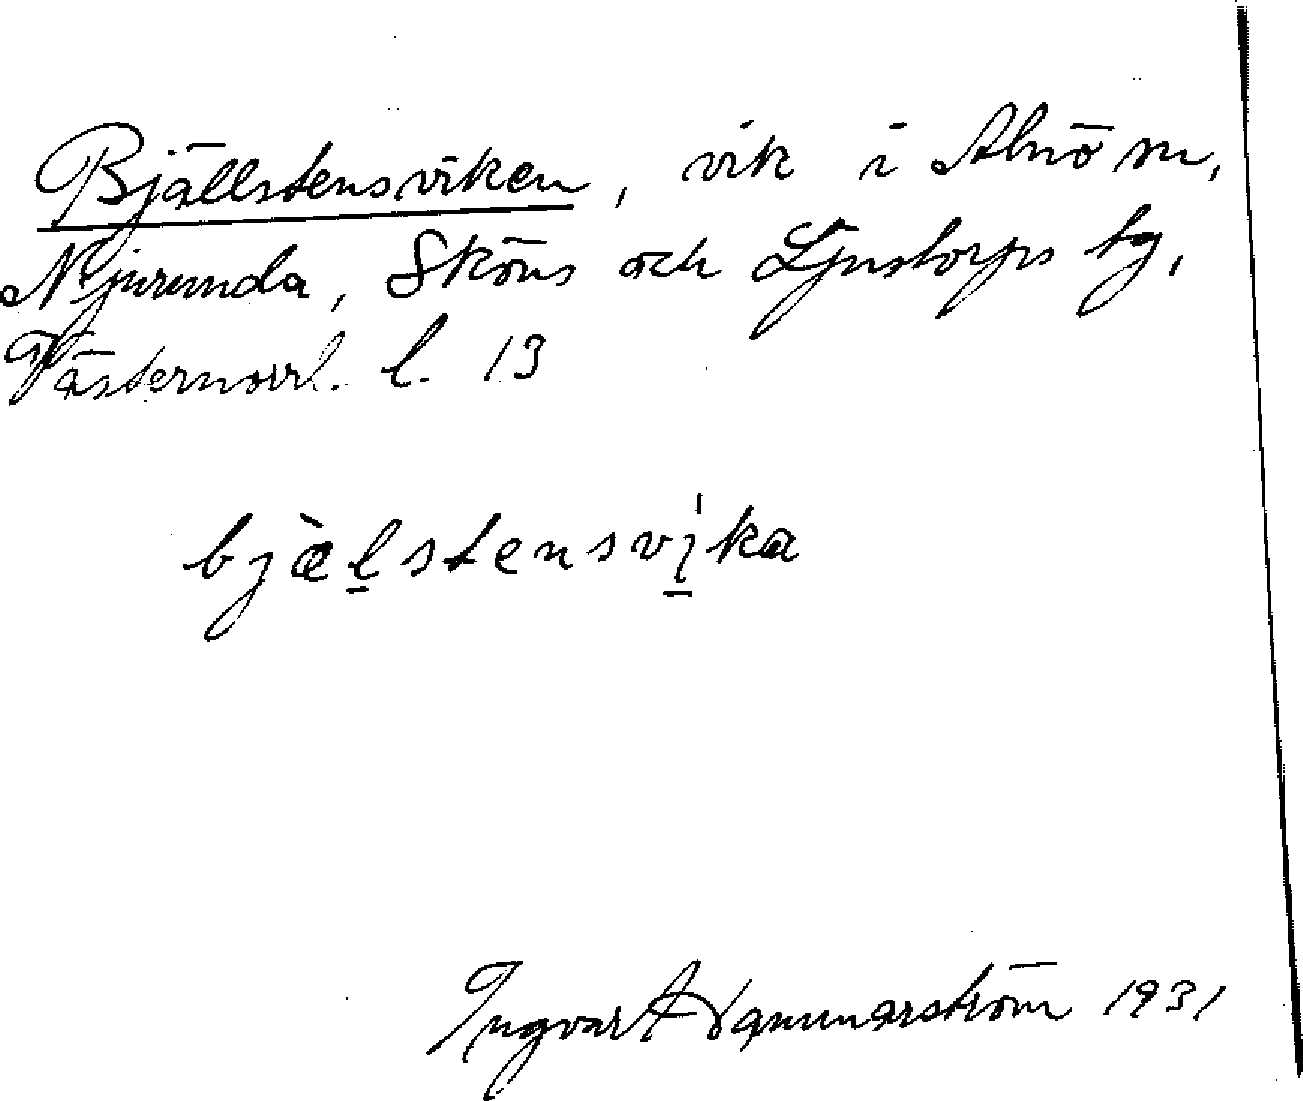 Bjällstensviken, vik i Alnö sn,
Njurunda, Sköns och Ljustorps tg,
Västernorrl. l. 13
bjæ̀lstensvi̠ka
Ingvar Hammarström 1931